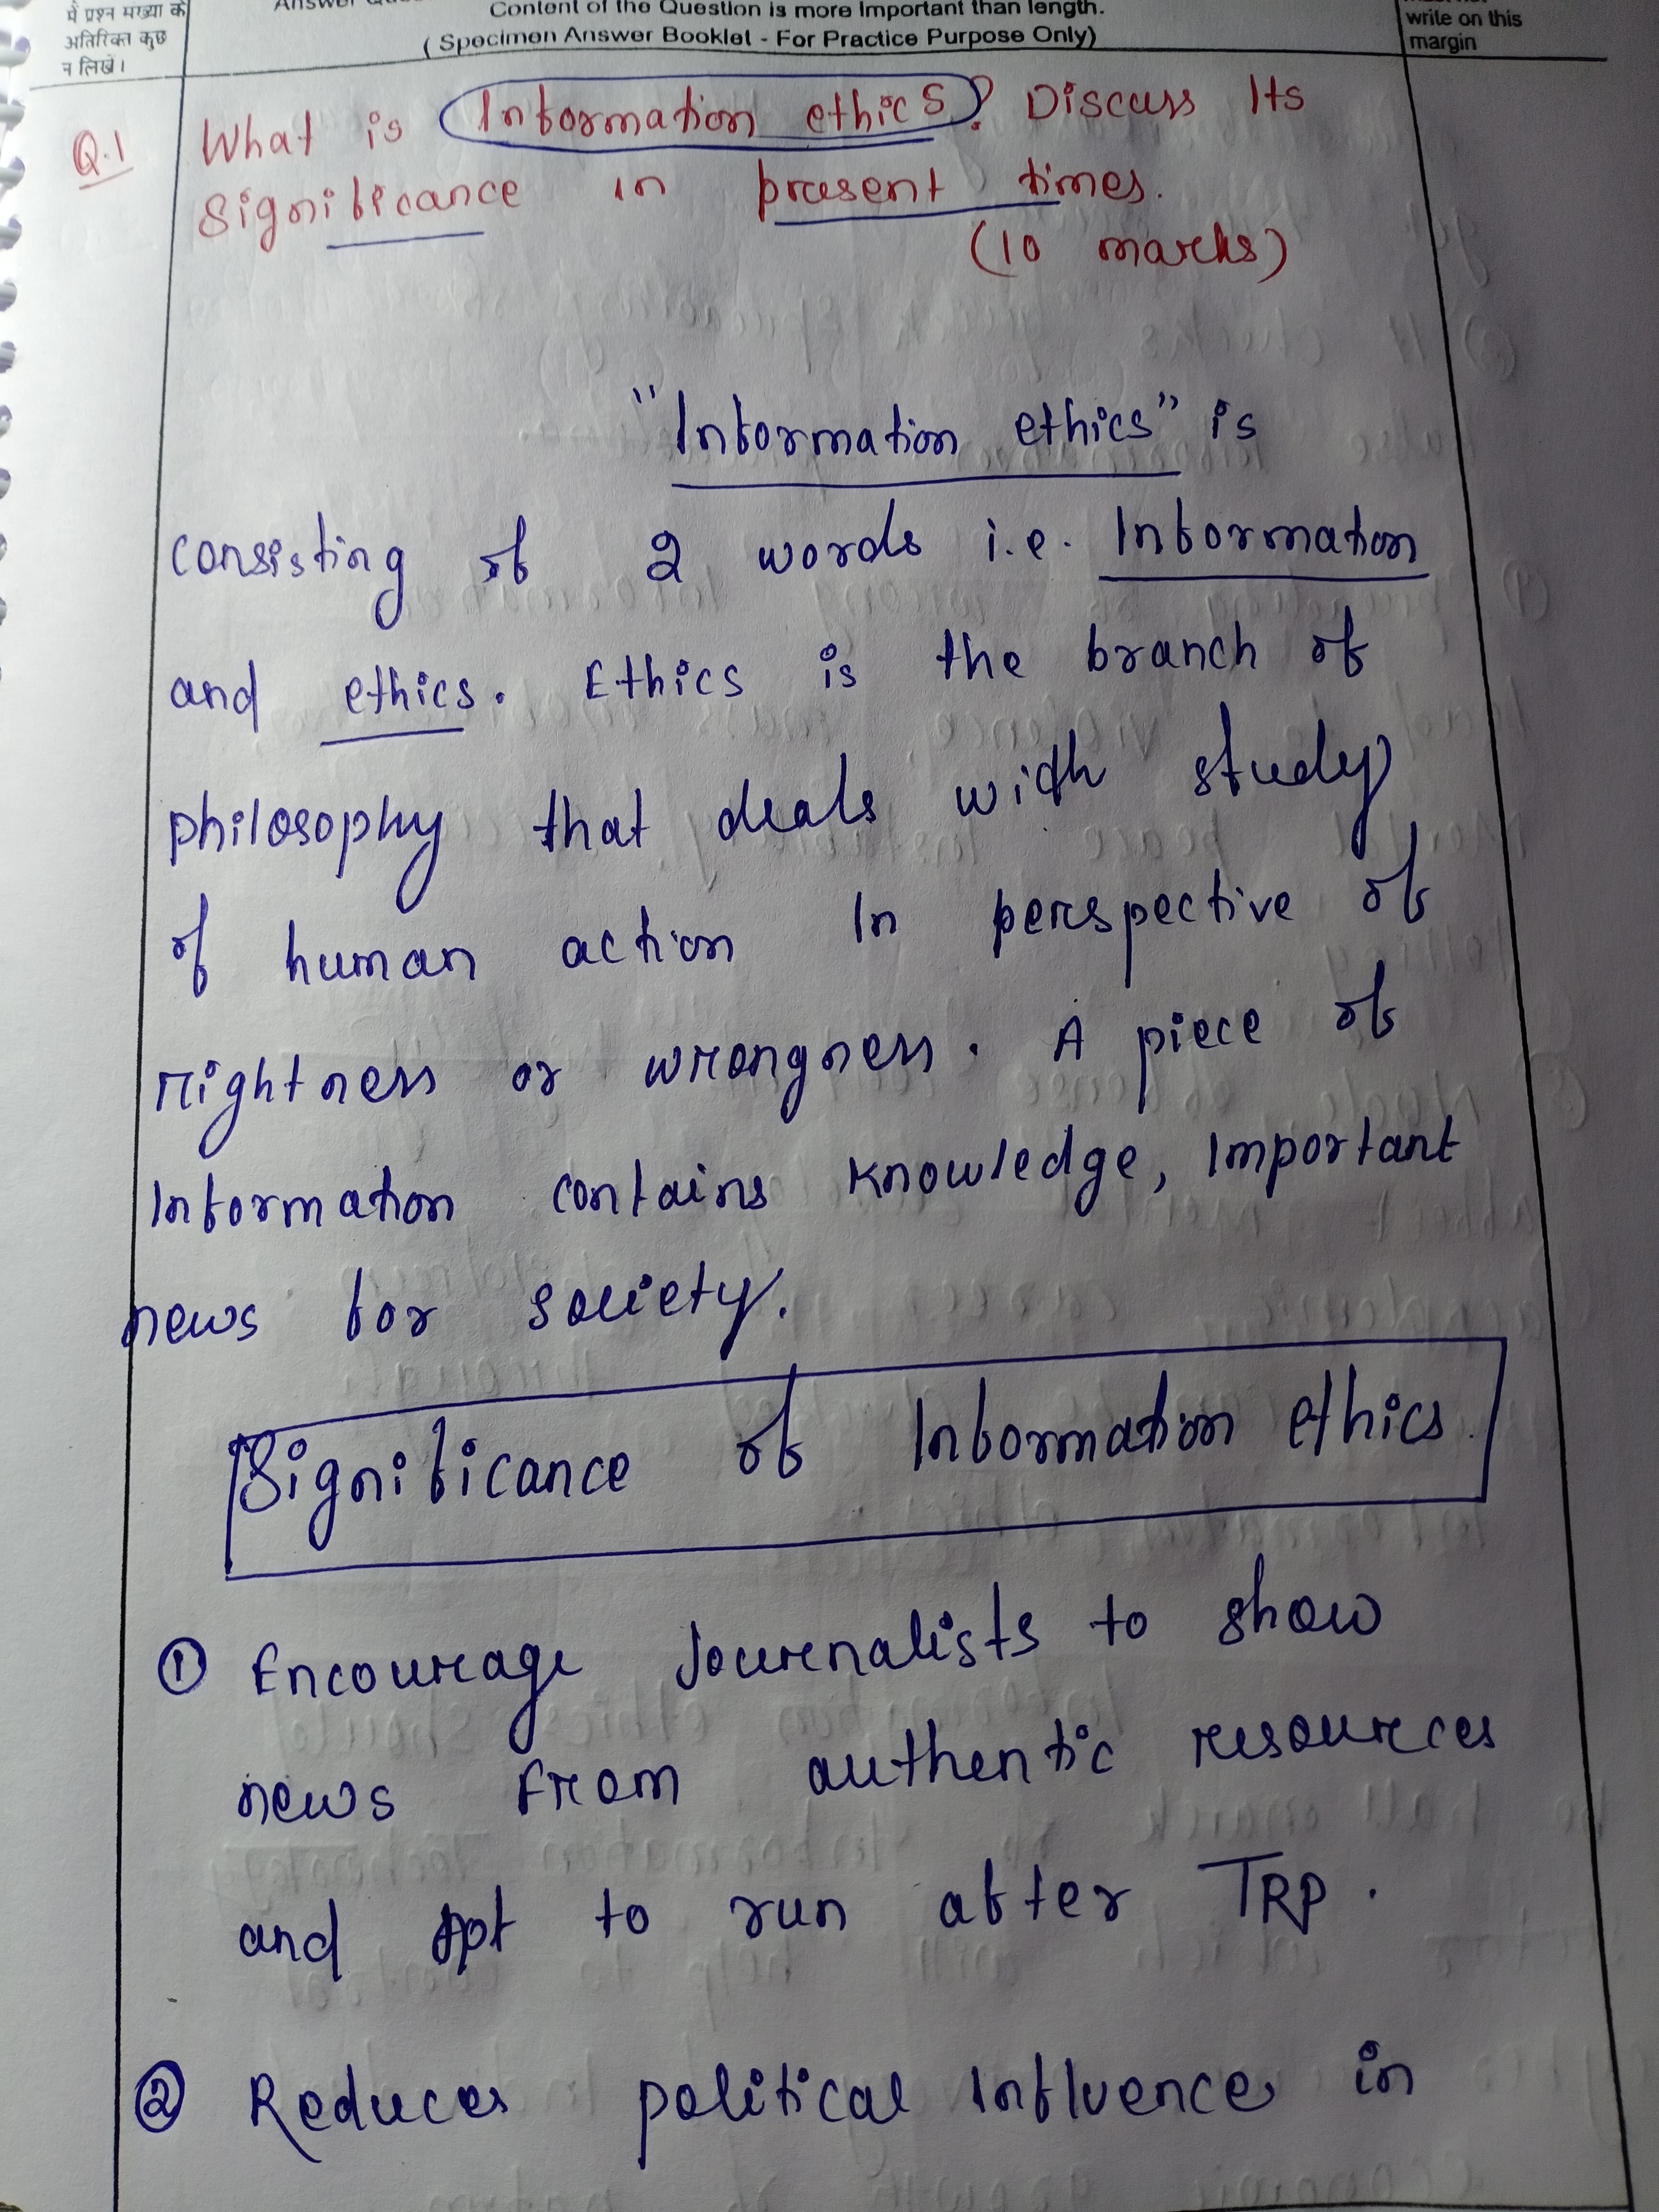 में प्रश्न संख्या के
अतिरिक्त कुछ
न लिखें।
Content of the Question is more important than length.
( Specimen Answer Booklet - For Practice Purpose Only)
write on this
margin
Q.1 What is Information ethics? Discuss Its
Significance in present times.
(10 marks)
"Information ethics" is
consisting of 2 words i.e. Information
and ethics. Ethics is the branch of
philosophy that deals with study
of human action In perspective of
rightness or wrongness. A piece of
Information contains knowledge, Important
news for society.
Significance of Information ethics.
① Encourage Journalists to show
news From authentic resources
and not to run after TRP.
② Reduces political Influences in